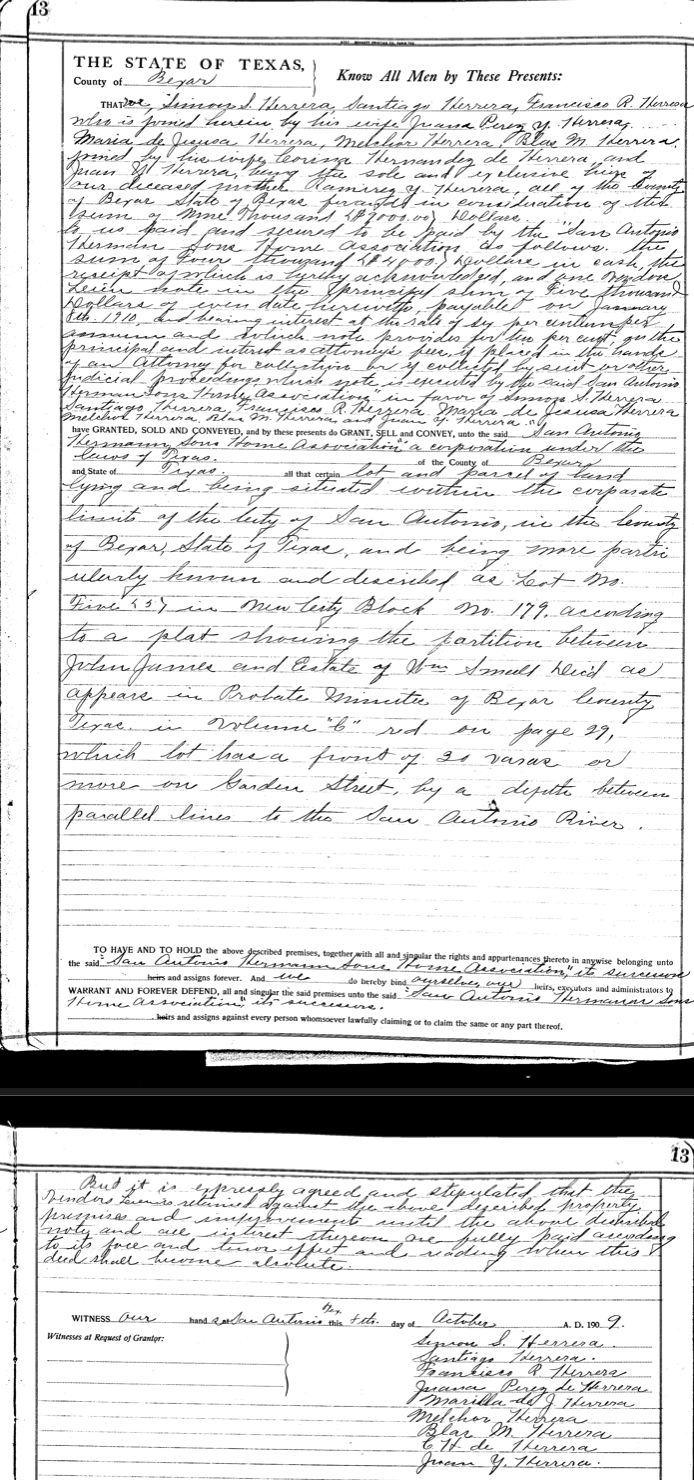 13
THE STATE OF TEXAS,
County of Bexar
Know All Men by These Presents:
THAT we, Simon S. Herrera, Santiago Herrera, Francisco R. Herrera
who is joined herein by his wife Juana Perez Y. Herrera,
Maria de Jesusa Herrera, Melchor Herrera, Blas M. Herrera,
joined by his wife, Corina Hernandez de Herrera, and
Juan Y. Herrera, being the sole and exclusive heirs of
our deceased mother Ramirez Y. Herrera, all of the County
of Bexar State of Texas for and in consideration of the
sum of Nine Thousand ($9000.00) Dollars.
to us paid, and secured to be paid by the "San Antonio
Herman Sons Home Association, as follows. the
sum of Four thousand ($4000.) Dollars in cash, the
receipt of which is hereby acknowledged, and one Vendors
Leien note in the principal sum of Five thousand
Dollars of even date herewith, payable on January
8th. 1910, and bearing interest at the rate of six per centum per
annum and which note provides for ten per cent, on the
principal and interest as attorneys fees, if placed in the hands
of an Attorney for collection or if collected by suit or other
judicial proceedings which note is executed by the said San Antonio
Herman Sons Home Association, in favor of Simon S. Herrera
Santiago Herrera, Francisco R. Herrera, Maria de Jesusa Herrera
Melchor Herrera, Blas M. Herrera and Juan Y. Herrera."
have GRANTED, SOLD AND CONVEYED, and by these presents do GRANT, SELL and CONVEY, unto the said San Antonio
Hermann Sons Home Association" a corporation under the
laws of Texas. of the County of Bexar
and State of Texas. all that certain lot and parcel of land
lying and being situated within the corporate
limits of the City of San Antonio, in the County
of Bexar, State of Texas, and being more partic
ularly known and described as Lot No.
Five (5) in New City Block No. 179. according
to a plat showing the partition between
John James and Estate of Wm Small Dec'd as
appears in Probate Minutes of Bexar County
Texas. in Volume "C" red on page 29,
which lot has a front of 30 varas or
more on Garden Street, by a depth between
parallel lines to the San Antonio River.
TO HAVE AND TO HOLD the above described premises, together with all and singular the rights and appurtenances thereto in anywise belonging unto
the said "San Antonio Hermann Sons Home Association," its successors
heirs and assigns forever. And we do hereby bind ourselves, our heirs, executors and administrators to
WARRANT AND FOREVER DEFEND, all and singular the said premises unto the said "San Antonio Hermann Sons
Home Association," its successors.
heirs and assigns against every person whomsoever lawfully claiming or to claim the same or any part thereof.
13
But it is expressly agreed and stipulated that the
Vendors Lein is retained against the above described property
premises and improvements until the above described
note and all interest thereon are fully paid according
to its face and tenor effect and reading when this
deed shall become absolute.
WITNESS our hands at San Antonio Tex this 8th. day of October A. D. 190 9.
Witnesses at Request of Grantor:
Simon S. Herrera.
Santiago Herrera.
Francisco R Herrera
Juana Perez de Herrera
Marilla de J Herrera
Melchor Herrera
Blas M. Herrera
C H. de Herrera
Juan Y. Herrera.